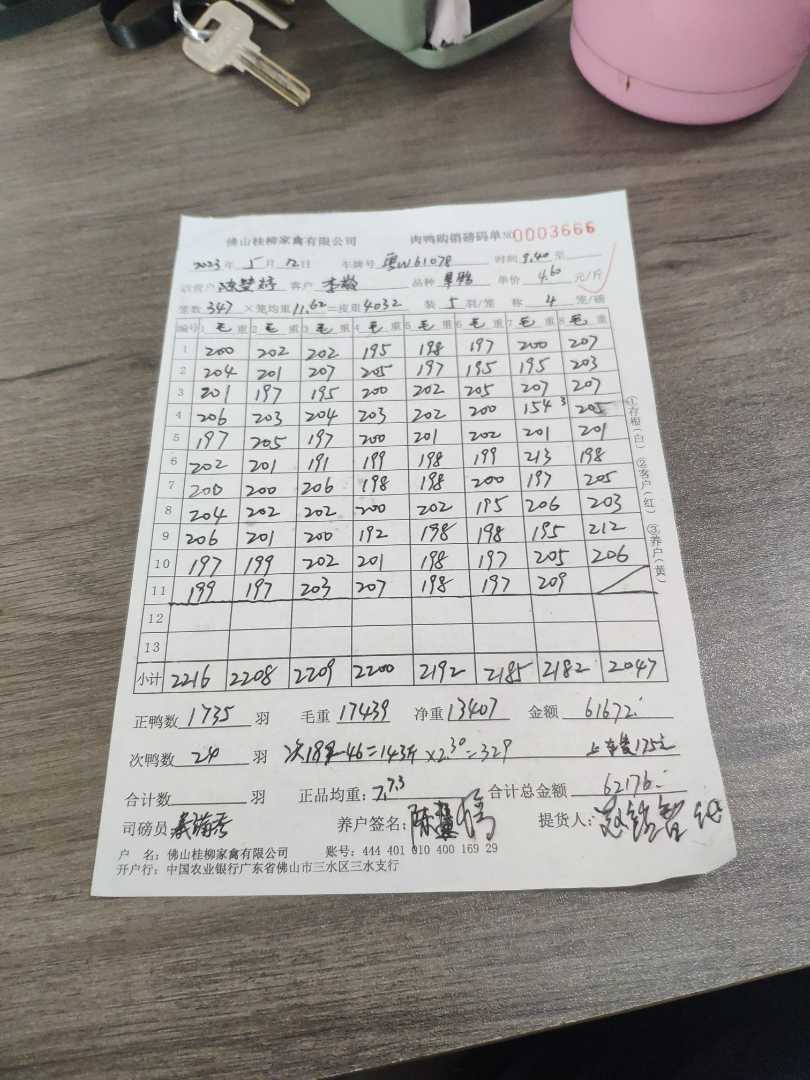 佛山桂柳家禽有限公司 肉鸭购销磅码单 № 0003666
2023 年 5 月 12 日 车牌号 粤W61078 时间 9.40 至
客户 李 品种 单价 4.60 元/斤
笼数 347 ×笼均重 11.62 =皮重 4032 装 5 羽/笼 称 4 笼/磅
编号 1 毛 重 2 毛 重 3 毛 重 4 毛 重 5 毛 重 6 毛 重 7 毛 重 8 毛 重
1 200 202 202 195 198 197 200 207
2 204 201 207 205 197 195 195 203
3 201 197 195 200 202 205 207 207
4 206 203 204 203 202 200 154 3 205
5 197 205 197 200 201 202 201 201
6 202 201 191 199 198 199 213 198
7 200 200 206 198 198 200 197 205
8 204 202 202 200 202 195 206 203
9 206 201 200 192 198 198 195 212
10 197 199 202 201 198 197 205 206
11 199 197 203 207 198 197 209
12
13
小计 2216 2208 2209 2200 2192 2185 2182 2047
①存根(白) ②客户(红) ③养户(黄)
正鸭数 1735 羽 毛重 17439 净重 13407 金额 61672.
次鸭数 24 羽 次189-46=143斤×2.30=329 上车费175元
合计数 羽 正品均重: 7.73 合计总金额 62176.
司磅员 养户签名: 陈 提货人:
户 名: 佛山桂柳家禽有限公司 账号: 444 401 010 400 169 29
开户行: 中国农业银行广东省佛山市三水区三水支行